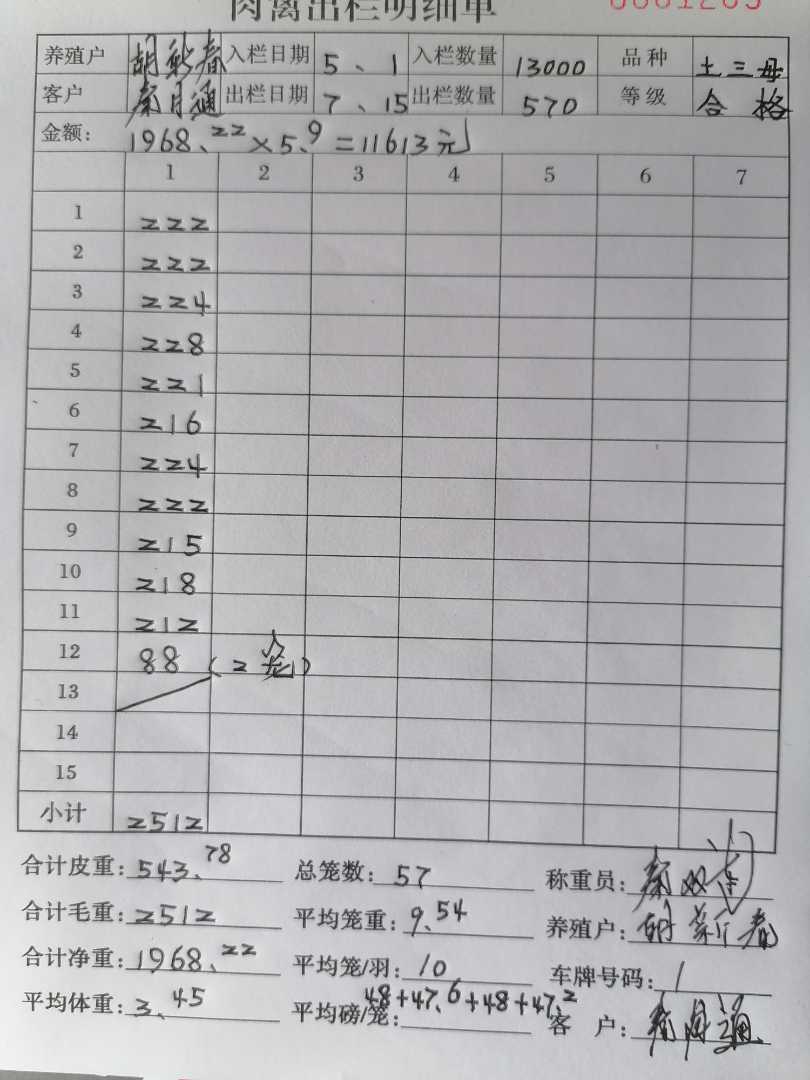 肉禽出栏明细单 0001265
养殖户 胡新春 入栏日期 5、1 入栏数量 13000 品种 土三母
客户 秦月通 出栏日期 7、15 出栏数量 570 等级 合格
金额: 1968.22×5.9=11613元
1 2 3 4 5 6 7
1 222
2 222
3 224
4 228
5 221
6 216
7 224
8 222
9 215
10 218
11 212
12 88 (2笼)
13
14
15
小计 2512
合计皮重: 543.78 总笼数: 57 称重员: 秦双
合计毛重: 2512 平均笼重: 9.54 养殖户: 胡新春
合计净重: 1968.22 平均笼/羽: 10 车牌号码: /
平均体重: 3.45 平均磅/笼: 48+47.6+48+47.2 客 户: 秦月通